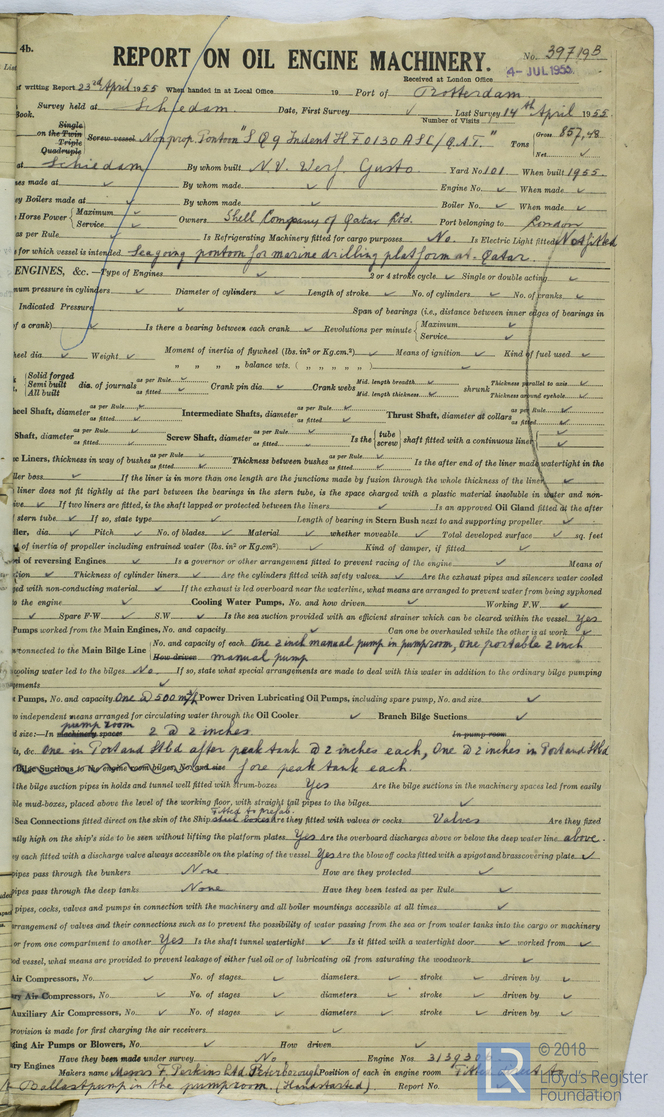 4b.
REPORT ON OIL ENGINE MACHINERY.
No. 39719B
Received at London Office
4- JUL 1955
of writing Report 23rd April 1955 When handed in at Local Office 19 Port of Rotterdam
Survey held at Schiedam Date, First Survey ✓ Last Survey 14th April 1955
Book. Number of Visits
Single
on the Twin Screw vessel Non prop. Pontoon "S Q 9 Indent H F 0130 A S C/Q.A.T." Tons Gross 857,48
Triple
Quadruple Net ✓
at Schiedam By whom built N.V. Werf. Gusto. Yard No 101 When built 1955.
nes made at ✓ By whom made ✓ Engine No. ✓ When made ✓
ey Boilers made at ✓ By whom made ✓ Boiler No. ✓ When made ✓
Horse Power Maximum ✓ Service ✓ Owners Shell Company of Qatar Ltd. Port belonging to London
as per Rule ✓ Is Refrigerating Machinery fitted for cargo purposes No. Is Electric Light fitted Not fitted
for which vessel is intended Seagoing pontoon for marine drilling platform at Qatar.
ENGINES, &c.—Type of Engines ✓ 2 or 4 stroke cycle ✓ Single or double acting ✓
num pressure in cylinders ✓ Diameter of cylinders ✓ Length of stroke ✓ No. of cylinders ✓ No. of cranks ✓
Indicated Pressure ✓ Span of bearings (i.e., distance between inner edges of bearings in
of a crank) ✓ Is there a bearing between each crank ✓ Revolutions per minute Maximum ✓ Service ✓
heel dia ✓ Weight ✓ Moment of inertia of flywheel (lbs. in² or Kg.cm.²) ✓ Means of ignition ✓ Kind of fuel used ✓
" " " balance wts. ( " " " " " ) ✓
Solid forged
Semi built dia. of journals as per Rule ✓ as fitted ✓ Crank pin dia ✓ Crank webs Mid. length breadth ✓ Mid. length thickness ✓ shrunk Thickness parallel to axis ✓ Thickness around eyehole ✓
All built
heel Shaft, diameter as per Rule ✓ as fitted ✓ Intermediate Shafts, diameter as per Rule ✓ as fitted ✓ Thrust Shaft, diameter at collars as per Rule ✓ as fitted ✓
Shaft, diameter as per Rule ✓ as fitted ✓ Screw Shaft, diameter as per Rule ✓ as fitted ✓ Is the tube screw shaft fitted with a continuous liner ✓
e Liners, thickness in way of bushes as per Rule ✓ as fitted ✓ Thickness between bushes as per Rule ✓ as fitted ✓ Is the after end of the liner made watertight in the
ller boss ✓ If the liner is in more than one length are the junctions made by fusion through the whole thickness of the liner ✓
liner does not fit tightly at the part between the bearings in the stern tube, is the space charged with a plastic material insoluble in water and non-
ive ✓ If two liners are fitted, is the shaft lapped or protected between the liners ✓ Is an approved Oil Gland fitted at the after
stern tube ✓ If so, state type ✓ Length of bearing in Stern Bush next to and supporting propeller ✓
ller, dia. ✓ Pitch ✓ No. of blades ✓ Material ✓ whether moveable ✓ Total developed surface ✓ sq. feet
t of inertia of propeller including entrained water (lbs. in² or Kg.cm²) ✓ Kind of damper, if fitted ✓
d of reversing Engines ✓ Is a governor or other arrangement fitted to prevent racing of the engine ✓ Means of
tion ✓ Thickness of cylinder liners ✓ Are the cylinders fitted with safety valves ✓ Are the exhaust pipes and silencers water cooled
ged with non-conducting material ✓ If the exhaust is led overboard near the waterline, what means are arranged to prevent water from being syphoned
to the engine ✓ Cooling Water Pumps, No. and how driven ✓ Working F.W. ✓
✓ Spare F.W ✓ S.W ✓ Is the sea suction provided with an efficient strainer which can be cleared within the vessel Yes
Pumps worked from the Main Engines, No. and capacity ✓ Can one be overhauled while the other is at work ✓
connected to the Main Bilge Line No. and capacity of each One 2 inch manual pump in pumproom, one portable 2 inch
How driven manual pump
cooling water led to the bilges No. If so, state what special arrangements are made to deal with this water in addition to the ordinary bilge pumping
gements ✓
t Pumps, No. and capacity One @ 500 m3/h Power Driven Lubricating Oil Pumps, including spare pump, No. and size ✓
o independent means arranged for circulating water through the Oil Cooler ✓ Branch Bilge Suctions ✓
pump room
d size:—In machinery spaces 2 @ 2 inches In pump room
s, &c. One in Port and Stbd after peak tank @ 2 inches each, One @ 2 inches in Port and Stbd
Bilge Suctions to the engine room bilges, No. and size fore peak tank each.
l the bilge suction pipes in holds and tunnel well fitted with strum-boxes Yes Are the bilge suctions in the machinery spaces led from easily
ble mud-boxes, placed above the level of the working floor, with straight tail pipes to the bilges ✓
fitted to prefab.
Sea Connections fitted direct on the skin of the Ship steel boxes Are they fitted with valves or cocks Valves Are they fixed
ently high on the ship's side to be seen without lifting the platform plates Yes Are the overboard discharges above or below the deep water line above.
ey each fitted with a discharge valve always accessible on the plating of the vessel Yes Are the blow off cocks fitted with a spigot and brass covering plate ✓
pipes pass through the bunkers None How are they protected ✓
pipes pass through the deep tanks None Have they been tested as per Rule ✓
pipes, cocks, valves and pumps in connection with the machinery and all boiler mountings accessible at all times ✓
rrangement of valves and their connections such as to prevent the possibility of water passing from the sea or from water tanks into the cargo or machinery
or from one compartment to another Yes Is the shaft tunnel watertight ✓ Is it fitted with a watertight door ✓ worked from ✓
od vessel, what means are provided to prevent leakage of either fuel oil or of lubricating oil from saturating the woodwork ✓
Air Compressors, No. ✓ No. of stages ✓ diameters ✓ stroke ✓ driven by ✓
ary Air Compressors, No. ✓ No. of stages ✓ diameters ✓ stroke ✓ driven by ✓
Auxiliary Air Compressors, No. ✓ No. of stages ✓ diameters ✓ stroke ✓ driven by ✓
rovision is made for first charging the air receivers ✓
ging Air Pumps or Blowers, No. ✓ How driven ✓
ary Engines Have they been made under survey No. Engine Nos. 313930
Makers name Messrs F. Perkins Ltd Peterborough Position of each in engine room Fitted
Ballastpump in the pumproom. (Handstarted). Report No. ✓
LR
© 2018
Lloyd's Register
Foundation